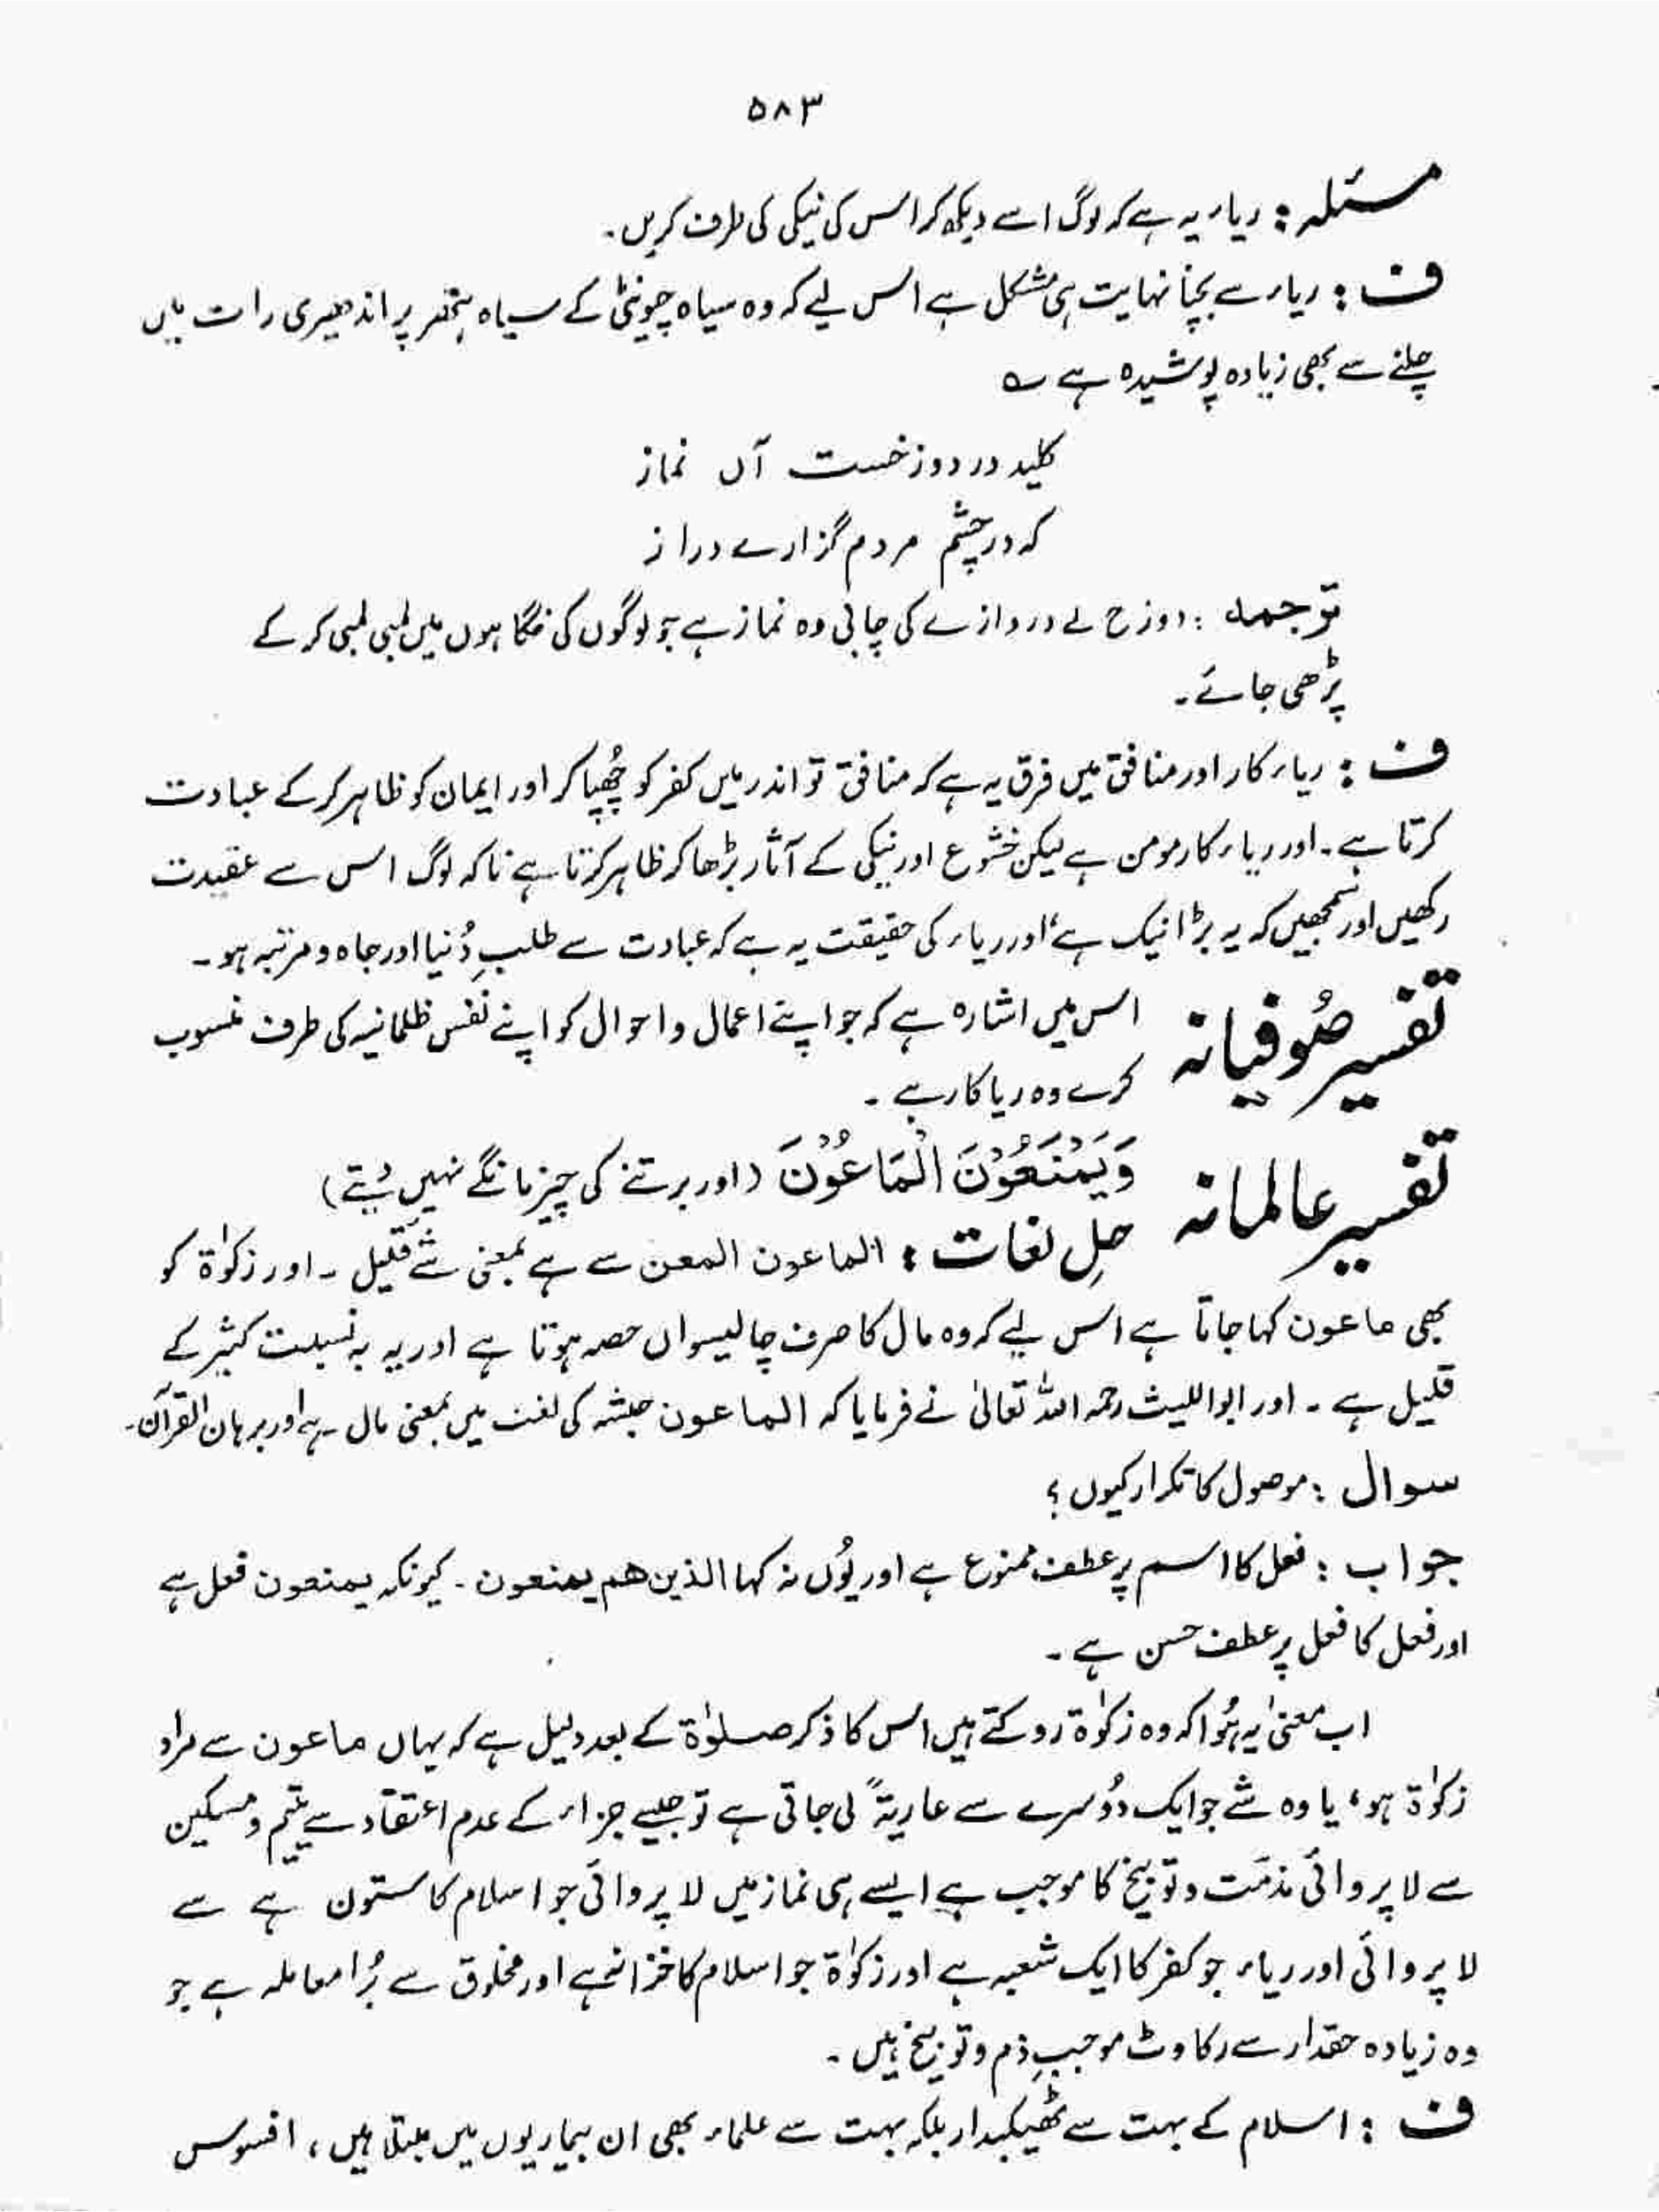 ۵۸۳
مسئلہ : ریاء یہ ہے کہ لوگ اسے دیکھ کر اس کی نیکی کی طرف کریں۔
ف : ریاء سے بچنا نہایت ہی مشکل ہے اس لیے کہ وہ سیاہ چیونٹی کے سیاہ پتھر پر اندھیری رات میں
چلنے سے بھی زیادہ پوشیدہ ہے ؎
کلید در دوزخست آں نماز
کہ در چشم مردم گزارے دراز
ترجمہ : دوزخ کے دروازے کی چابی وہ نماز ہے جو لوگوں کی نگاہوں میں لمبی لمبی کر کے
پڑھی جائے۔
ف : ریاء کار اور منافق میں فرق یہ ہے کہ منافق تو اندر میں کفر کو چھُپا کر اور ایمان کو ظاہر کر کے عبادت
کرتا ہے۔ اور ریاء کار مومن ہے لیکن خشوع اور نیکی کے آثار بڑھا کر ظاہر کرتا ہے تاکہ لوگ اس سے عقیدت
رکھیں اور سمجھیں کہ یہ بڑا نیک ہے، اور ریاء کی حقیقت یہ ہے کہ عبادت سے طلبِ دُنیا اور جاہ و مرتبہ ہو۔
تفسیر صُوفیانہ اس میں اشارہ ہے کہ جو اپنے اعمال و احوال کو اپنے نفس ظلمانیہ کی طرف منسوب
کرے وہ ریا کار ہے۔
تفسیر عالمانہ وَيَمْنَعُوْنَ الْمَاعُوْنَ (اور برتنے کی چیز مانگے نہیں دیتے)
حلِ لغات : الماعون المعن سے ہے بمعنی شے قلیل۔ اور زکوٰۃ کو
بھی ماعون کہا جاتا ہے اس لیے کہ وہ مال کا صرف چالیسواں حصہ ہوتا ہے اور یہ بہ نسبت کثیر کے
قلیل ہے۔ اور ابو اللیث رحمہ اللہ تعالیٰ نے فرمایا کہ الماعون حبشہ کی لغت میں بمعنی مال۔ ہے اور برہان القرآن۔
سوال : موصول کا تکرار کیوں ؟
جواب : فعل کا اسم پر عطف ممنوع ہے اور یُوں نہ کہا الذین ھم یمنعون۔ کیونکہ یمنعون فعل ہے
اور فعل کا فعل پر عطف حسن ہے۔
اب معنیٰ یہ ہُوا کہ وہ زکوٰۃ روکتے ہیں اس کا ذکر صلوٰۃ کے بعد دلیل ہے کہ یہاں ماعون سے مراد
زکوٰۃ ہو، یا وہ شے جو ایک دُوسرے سے عاریۃً لی جاتی ہے تو جیسے جزاء کے عدم اعتقاد سے یتیم و مسکین
سے لاپروائی مذمّت و توبیخ کا موجب ہے ایسے ہی نماز میں لاپروائی جو اسلام کا ستون ہے سے
لاپروائی اور ریاء جو کفر کا ایک شعبہ ہے اور زکوٰۃ جو اسلام کا خزانہ ہے اور مخلوق سے بُرا معاملہ ہے جو
وہ زیادہ حقدار سے رکاوٹ موجبِ ذم و توبیخ ہیں۔
ف : اسلام کے بہت سے ٹھیکیدار بلکہ بہت سے علماء بھی ان بیماریوں میں مبتلا ہیں، افسوس